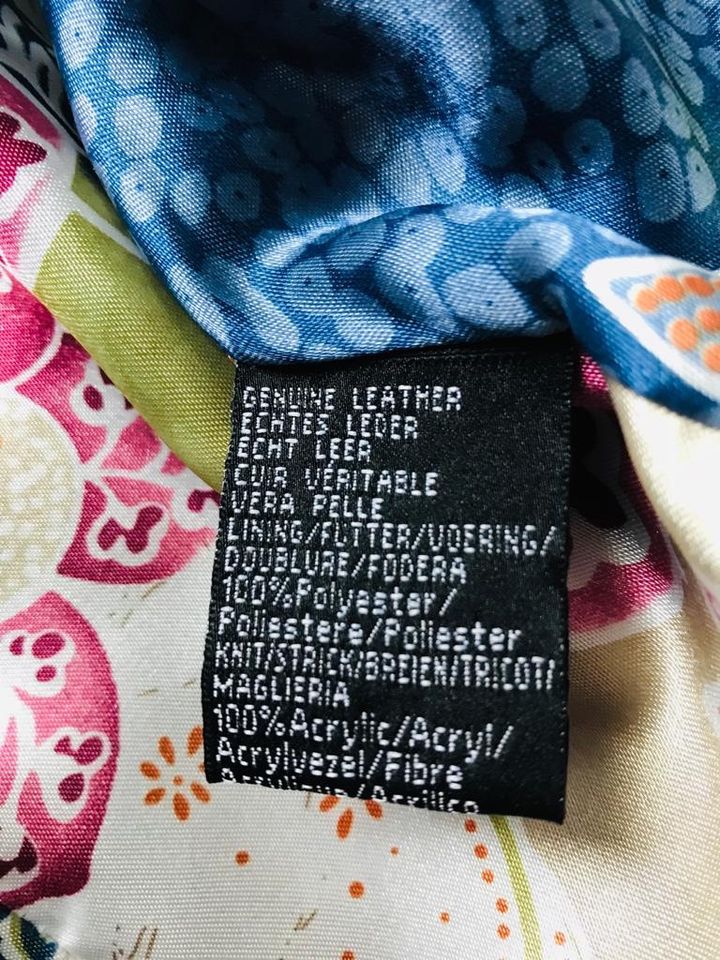 GENUINE LEATHER
ECHTES LEDER
ECHT LEER
CUIR VÉRITABLE
VERA PELLE
LINING/FUTTER/VOERING/
DOUBLURE/FODERA
100%Polyester/
Poliestere/Poliester
KNIT/STRICK/BREIEN/TRICOT/
MAGLIERIA
100%Acrylic/Acryl/
Acrylvezel/Fibre
Acrylique/Acrilico